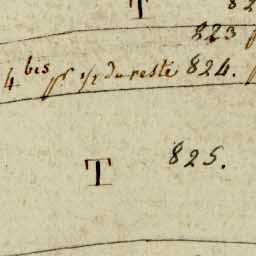 T 82
823
4 bis pr 1/2 du reste 824.
T 825.